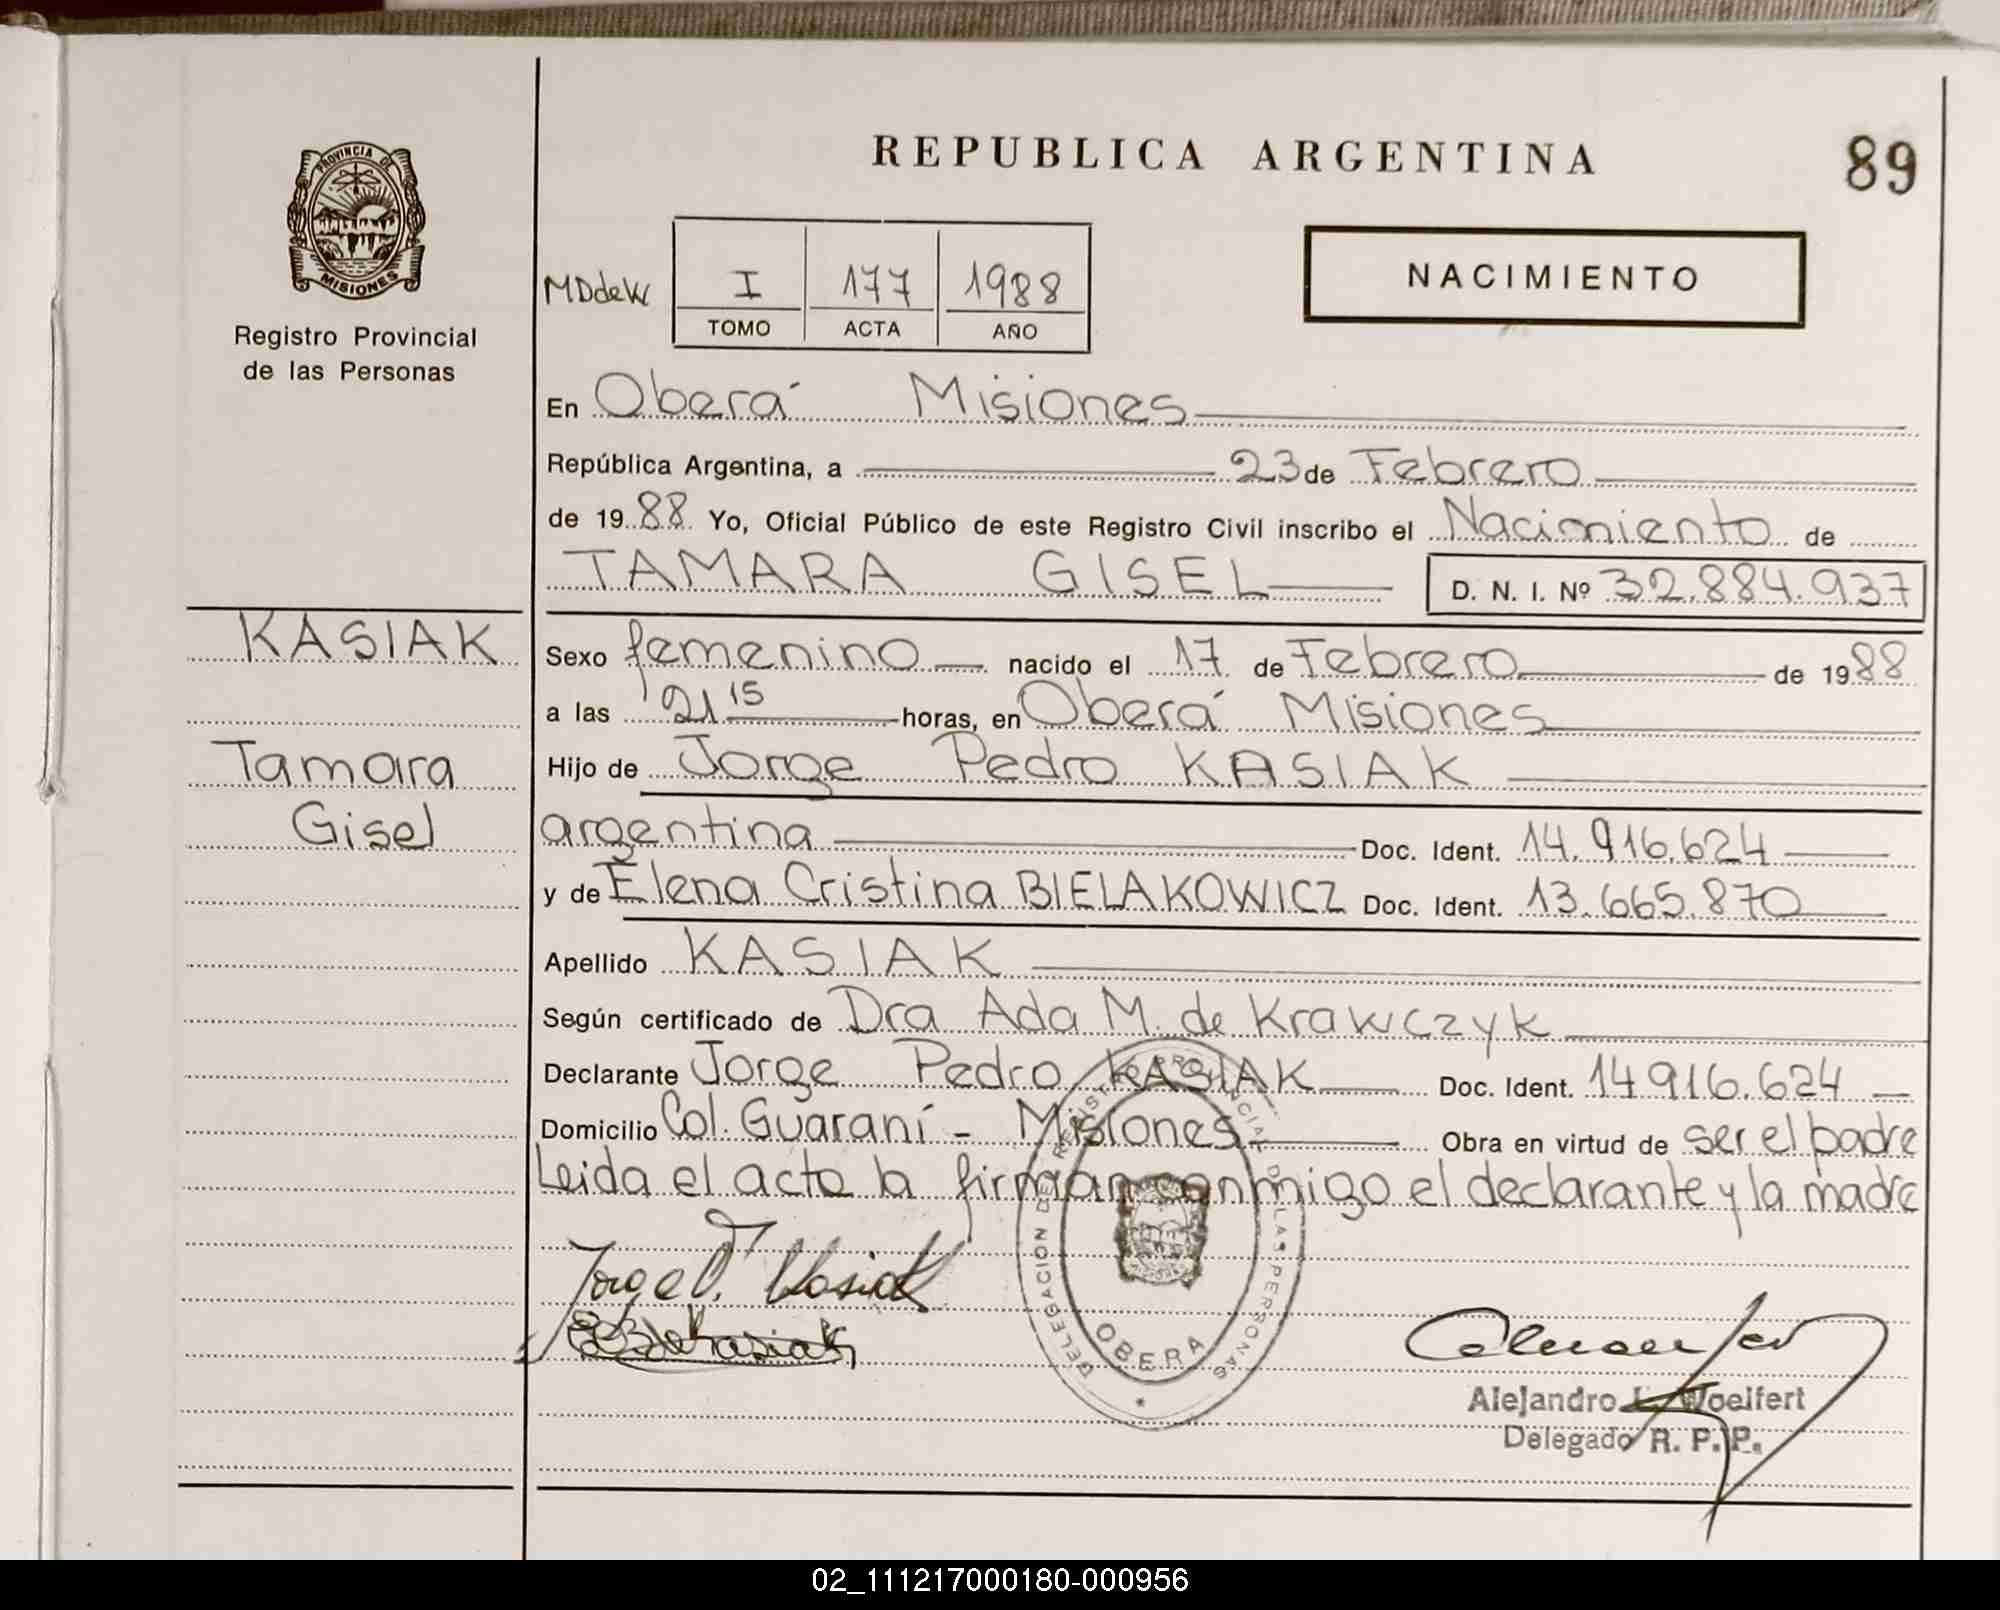 REPUBLICA ARGENTINA
89
PROVINCIA DE
MISIONES
Registro Provincial
de las Personas
MDdeW
I 177 1988
TOMO ACTA AÑO
NACIMIENTO
En Oberá Misiones
República Argentina, a 23 de Febrero
de 1988 Yo, Oficial Público de este Registro Civil inscribo el Nacimiento de
TAMARA GISEL D. N. I. Nº 32.884.937
KASIAK
Tamara
Gisel
Sexo femenino nacido el 17 de Febrero de 1988
a las 21 15 horas, en Oberá Misiones
Hijo de Jorge Pedro KASIAK
argentina Doc. Ident. 14.916.624
y de Elena Cristina BIELAKOWICZ Doc. Ident. 13.665.870
Apellido KASIAK
Según certificado de Dra Ada M. de Krawczyk
Declarante Jorge Pedro KASIAK Doc. Ident. 14916.624
Domicilio Col. Guaraní - Misiones Obra en virtud de ser el padre
Leida el acta la firman conmigo el declarante y la madre
Jorge P. Kasiak
DELEGACION DEL REGISTRO PROVINCIAL DE LAS PERSONAS
OBERA
Alejandro L. Woelfert
Delegado R. P. P.
02_111217000180-000956